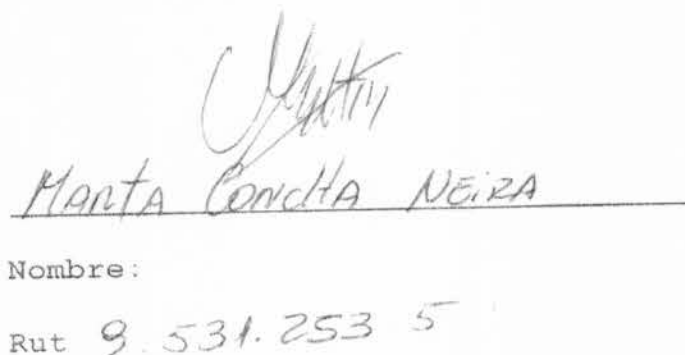 MARTA CONCHA NEIRA
Nombre:
Rut 9.531.253 5